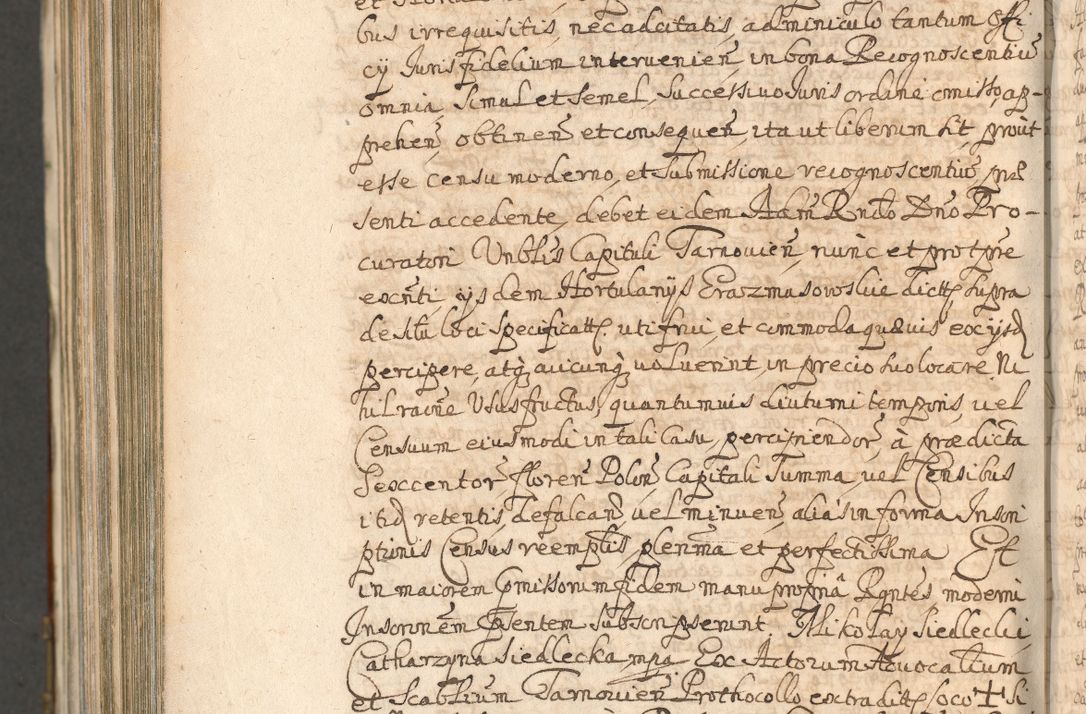 bus irrequisitis, nec adcitatis, adminiculo tantum Offi
cÿ Jurisfidelium intervenien̄, in bona Recognoscentiū
omnia, simul et semel, Successivo Juris ordine omisso, ap-
prehen̄, obtinen̄ et consequen̄, ita ut liberum sit, prout
esse censu moderno, et submissione recognoscentiū, præ
senti accedente, debet eidem Adm̄ Rndo Dn̄o Pro-
curatori Vnblis Capituli Tarnovien̄, nunc et pro tp̄re
existn̄ti, ÿsdem Hortulanÿs Eraszmasowskie dictis supra
de situ loci specificatis. uti frui, et commoda quævis ex ÿsd
percipere, atq̧ cuicunq̧ voluerint, in precio suo locare. Ni
hil rãone Vsusfructus, quantumvis diuturni temporis, vel
Censuum eiusmodi in tali Casu percipiendor̄, à prædicta
Sexcentor̄, floren̄ Polon̄, Capitali Summa, vel Censibus
itid retentis defalcan̄, vel minuen̄, alias in forma Inscri
ptionis Census reemplis, plenm̄a et perfectissima Est
in maiorem Omissorum fidem manu propriâ Rgntes moderni
Inscr̄onem Pn̄sentem subscripserunt, Mikołay Siedlecki,
Catharzyna Siedlecka mpa, Ex Actorum Advocalium
et Scablium Tarnovien̄ Prothocollo extradittis loco + Si